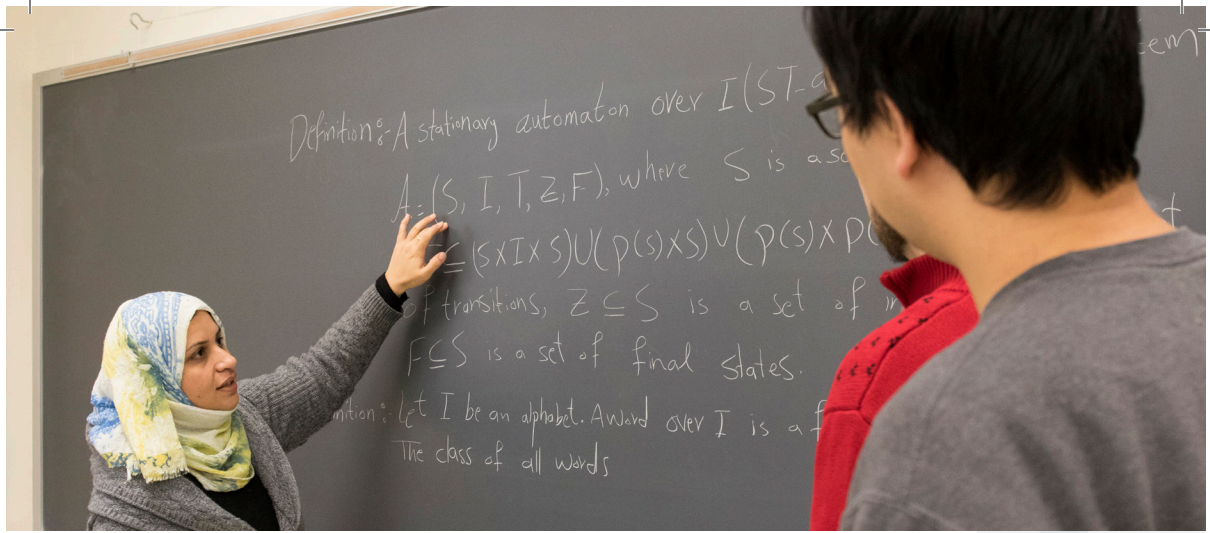 Definition:- A stationary automaton over I (ST-
A = (S, I, T, Z, F), where S is a
⊆ (S X I X S) U (P(S) X S) U (P(S) X P(
of transitions, Z ⊆ S is a set of
F ⊆ S is a set of final states.
Let I be an alphabet. A word over I is a
The class of all words